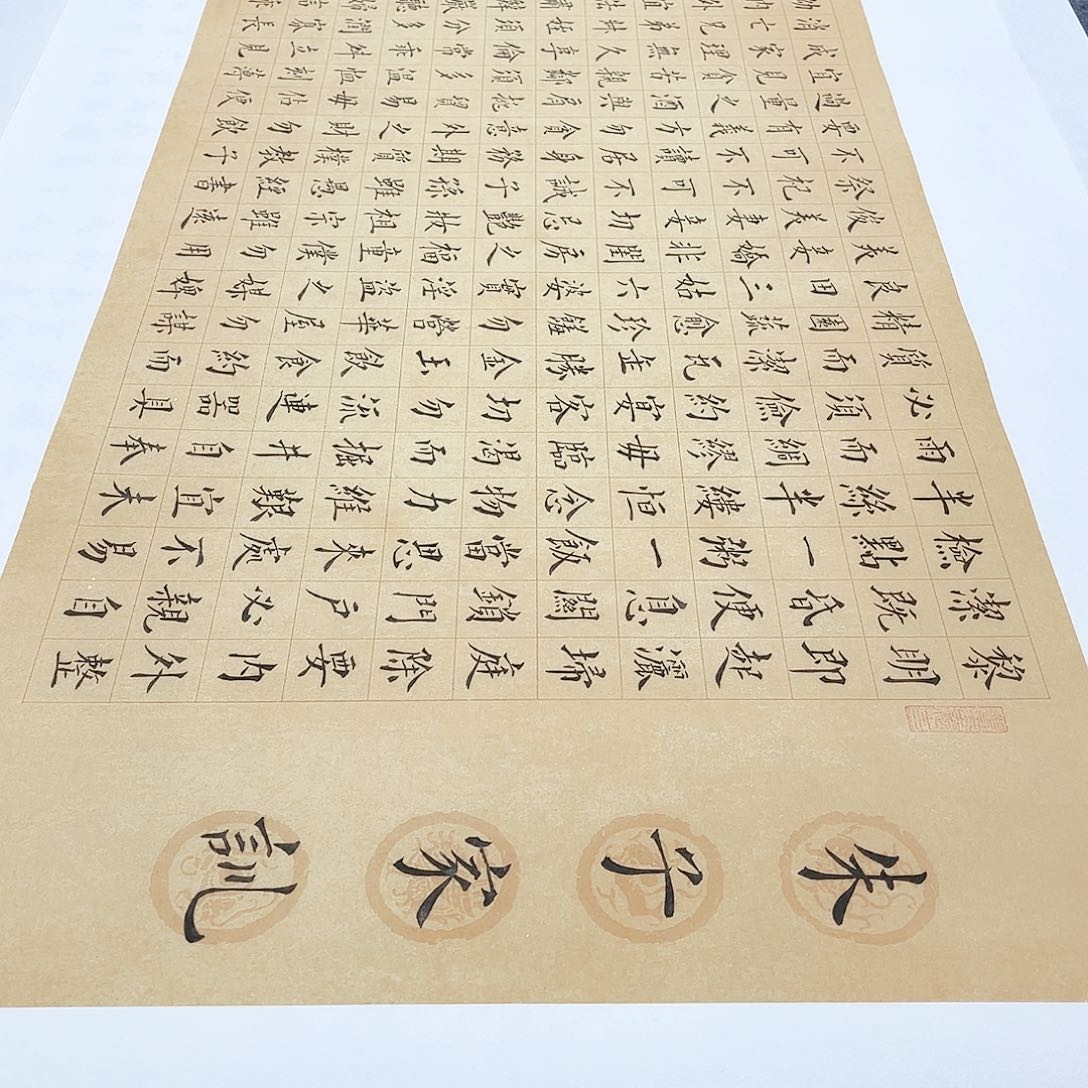 朱子家訓
黎明即起灑掃庭除要內外整
潔既昏便息關鎖門戶必親自
檢點一粥一飯當思來處不易
半絲半縷恒念物力維艱宜未
雨而綢繆毋臨渴而掘井自奉
必須儉約宴客切勿流連器具
質而潔瓦缶勝金玉飲食約而
精園蔬愈珍饈勿營華屋勿謀
良田三姑六婆實淫盜之媒婢
美妾嬌非閨房之福童僕勿用
俊美妻妾切忌艷妝祖宗雖遠
祭祀不可不誠子孫雖愚經書
不可不讀居身務期質樸教子
要有義方勿貪意外之財勿飲
過量之酒與肩挑貿易毋佔便
宜見貧苦親鄰須多溫恤刻薄
成家理無久享倫常乖舛立見
消亡兄弟叔姪須分多潤寡長